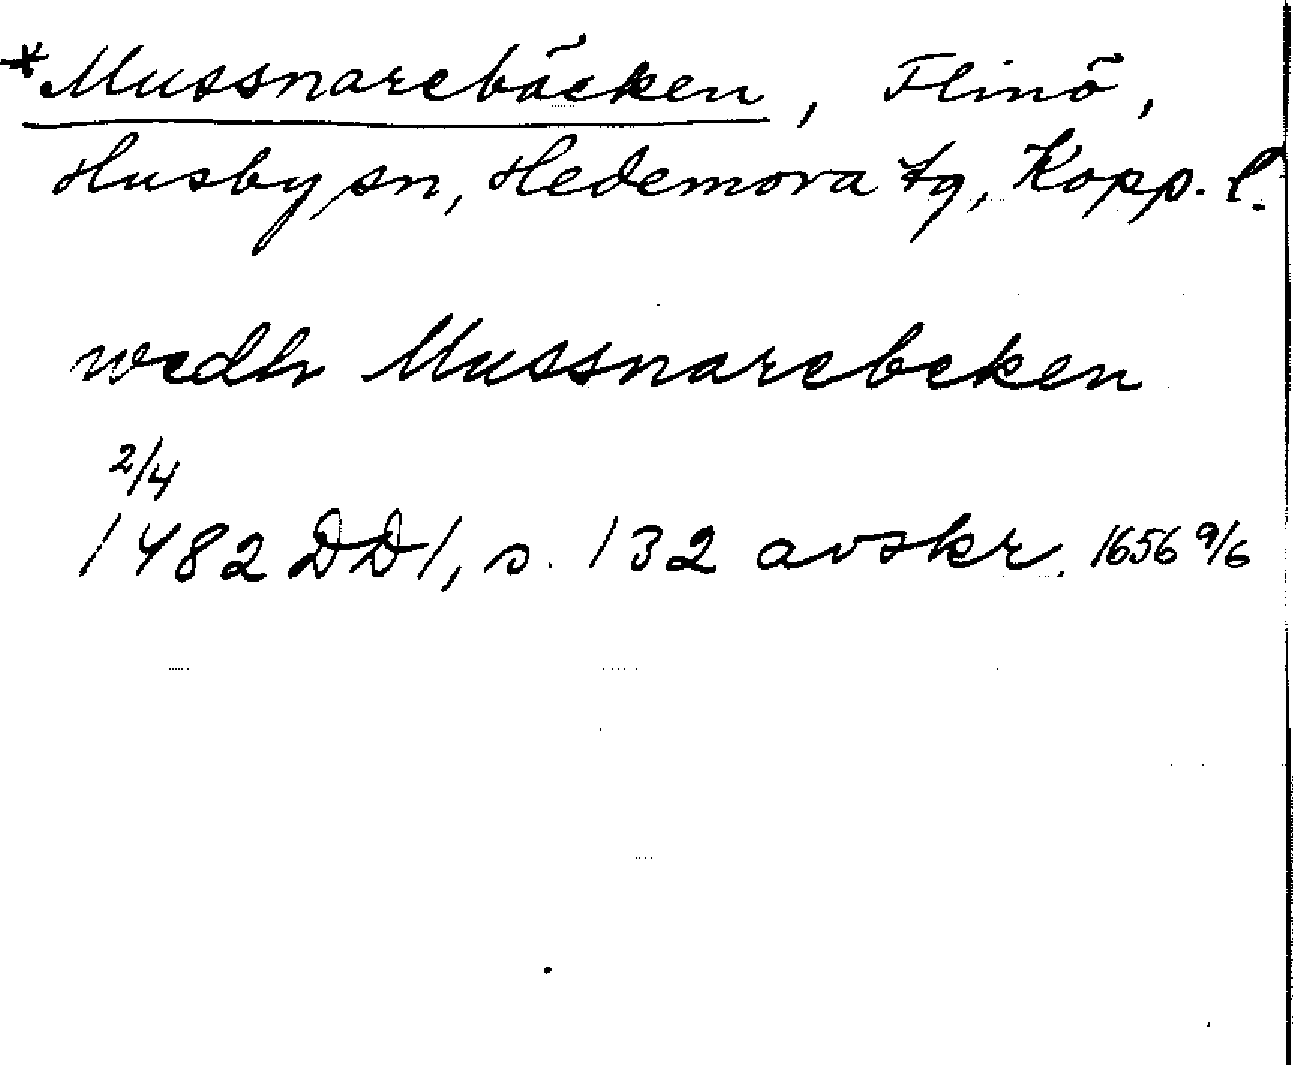 *Mussnarebäcken, Flinö,
Husby sn, Hedemora tg, Kopp. l.
wedh Mussnarebeken
2/4
1482 DD1, s. 132 avskr. 1656 9/6